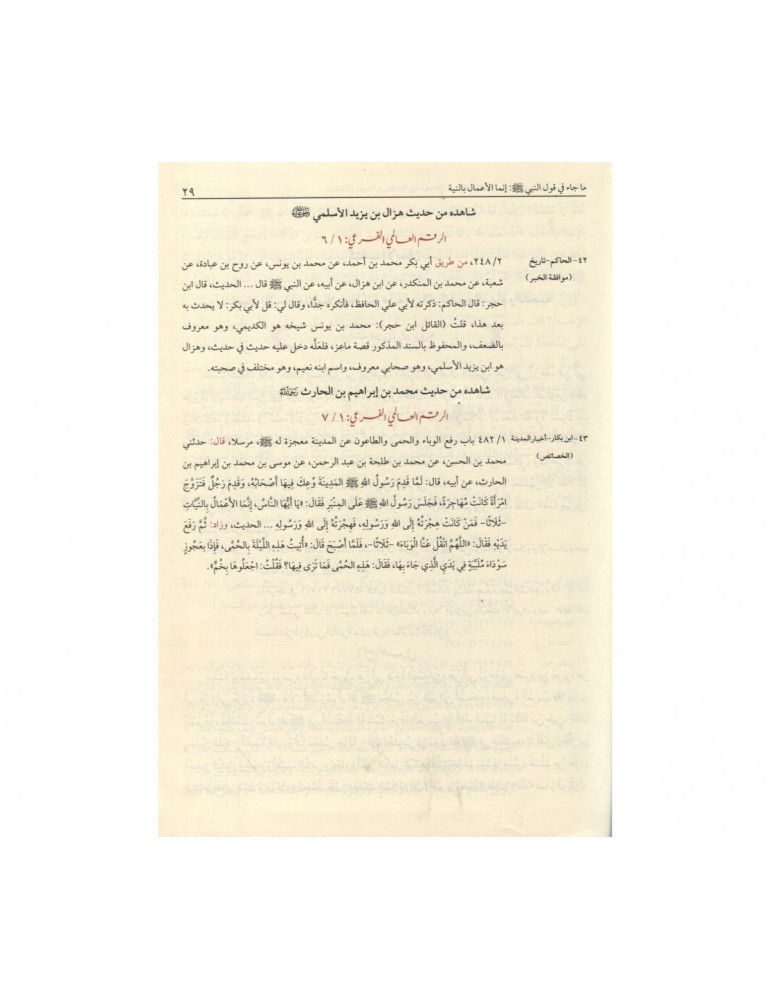 ما جاء في قول النبي ﷺ: إنما الأعمال بالنية ٢٩
شاهده من حديث هزال بن يزيد الأسلمي رضي الله عنه
الرقم العالمي الفرعي: ١ / ٦
٤٢- الحاكم-تاريخ ٢٤٨/٢، من طريق أبي بكر محمد بن أحمد، عن محمد بن يونس، عن روح بن عبادة، عن
(موافقة الخبر) شعبة، عن محمد بن المنكدر، عن ابن هزال، عن أبيه، عن النبي ﷺ قال ... الحديث، قال ابن
حجر: قال الحاكم: ذكرته لأبي علي الحافظ، فأنكره جدًّا، وقال لي: قل لأبي بكر: لا يحدث به
بعد هذا، قلتُ (القائل ابن حجر): محمد بن يونس شيخه هو الكديمي، وهو معروف
بالضعف، والمحفوظ بالسند المذكور قصة ماعز، فلعَلَّه دخل عليه حديث في حديث، وهزال
هو ابن يزيد الأسلمي، وهو صحابي معروف، واسم ابنه نعيم، وهو مختلف في صحبته.
شاهده من حديث محمد بن إبراهيم بن الحارث رحمه الله
الرقم العالمي الفرعي: ١ / ٧
٤٣- ابن بكار-أخبار المدينة ٤٨٢/١ باب رفع الوباء والحمى والطاعون عن المدينة معجزة له ﷺ، مرسلا، قال: حدثني
(الخصائص) محمد بن الحسن، عن محمد بن طلحة بن عبد الرحمن، عن موسى بن محمد بن إبراهيم بن
الحارث، عن أبيه، قال: لَمَّا قَدِمَ رَسُولُ اللهِ ﷺ المَدِينَةَ وُعِكَ فِيهَا أَصْحَابُهُ، وَقَدِمَ رَجُلٌ فَتَزَوَّجَ
امْرَأَةً كَانَتْ مُهَاجِرَةً، فَجَلَسَ رَسُولُ اللهِ ﷺ عَلَى المِنْبَرِ فَقَالَ: «يَا أَيُّهَا النَّاسُ، إِنَّمَا الأَعْمَالُ بِالنِّيَّاتِ
-ثَلَاثًا- فَمَنْ كَانَتْ هِجْرَتُهُ إِلَى اللهِ وَرَسُولِهِ، فَهِجْرَتُهُ إِلَى اللهِ وَرَسُولِهِ ... الحديث، وزاد: ثُمَّ رَفَعَ
يَدَيْهِ فَقَالَ: «اللَّهُمَّ انْقُلْ عَنَّا الْوَبَاءَ» -ثَلَاثًا-، فَلَمَّا أَصْبَحَ قَالَ: «أُتِيتُ هَذِهِ اللَّيْلَةَ بِالحُمَّى، فَإِذَا بِعَجُوزٍ
سَوْدَاءَ مُلَبَّبَةٍ فِي يَدَيِ الَّذِي جَاءَ بِهَا، فَقَالَ: هَذِهِ الحُمَّى فَمَا تَرَى فِيهَا؟ فَقُلْتُ: اجْعَلُوهَا بِخُمٍّ».